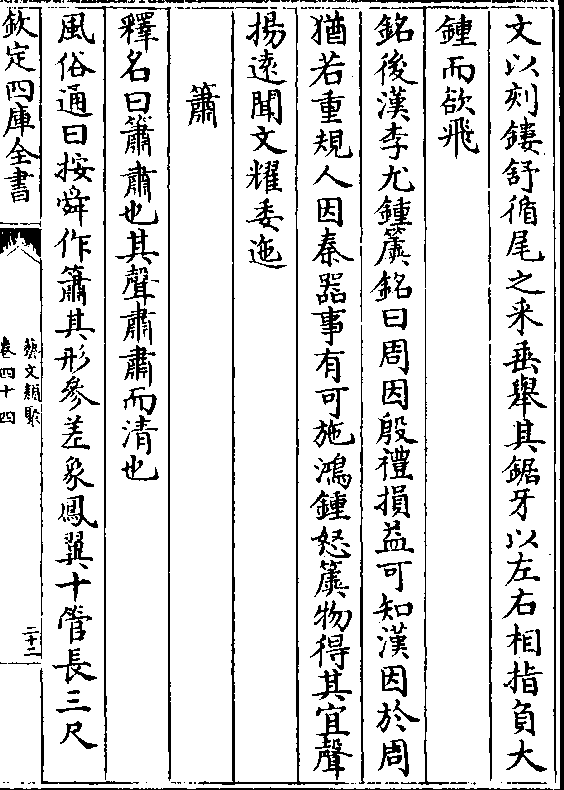 文以刻鏤舒循尾之采垂舉其鋸牙以左右相指負大
鍾而欲飛
銘後漢李尤鍾簴銘曰周因殷禮損益可知漢因於周
猶若重規人因秦器事有可施鴻鍾怒簴物得其宜聲
揚遠聞文耀委迤
簫
釋名曰簫肅也其聲肅肅而清也
風俗通曰按舜作簫其形參差象鳳翼十管長三尺
欽定四庫全書
藝文類聚
卷四十四
二十二